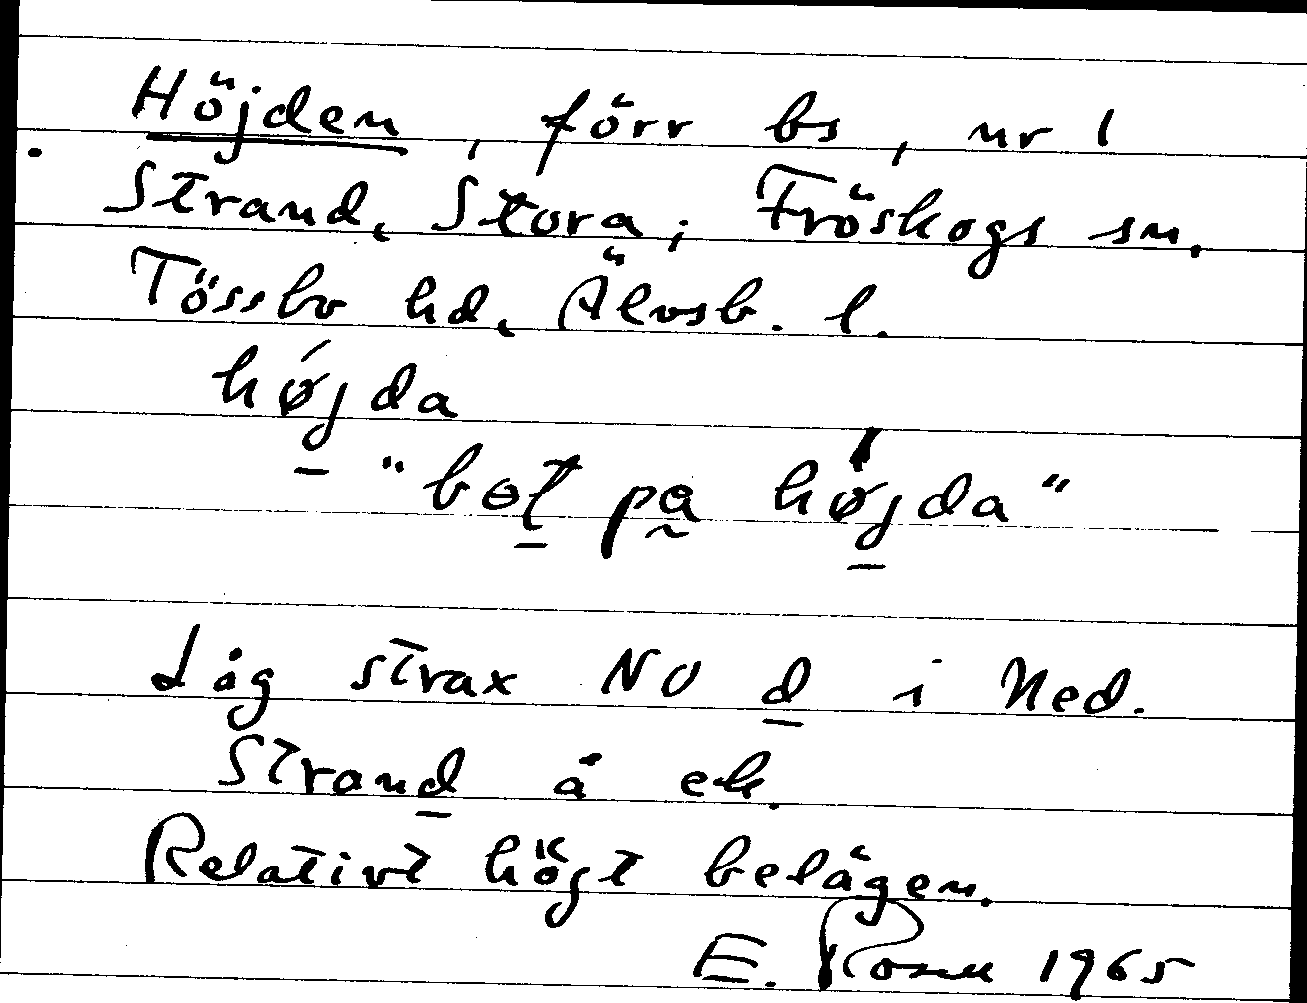 Höjden, förr bs, nr 1
Strand, Stora, Fröskogs sn.
Tössbo hd, Älvsb. l.
højda
"bot pa højda"
Låg strax NO d i Ned.
Strand å ek.
Relativt högt belägen.
E. Rosell 1965